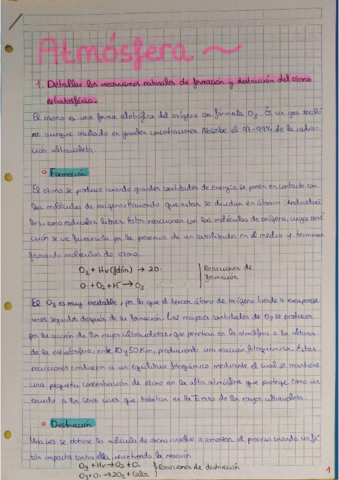 Atmósfera
1. Detallar los mecanismos naturales de formación y destrucción del ozono
estratosférico.
El ozono es una forma alotrópica del oxígeno con fórmula O3. Es un gas
aunque inhalado en grandes concentraciones. Absorbe el 97-99% de la radia-
ción ultravioleta.
Formación
El ozono se produce cuando grandes cantidades de energía se ponen en contacto con
las moléculas de oxígeno, haciendo que estas se dividan en átomos individua
les como radicales libres. Estos reaccionan con las moléculas de oxígeno, cuya reac
ción se ve favorecida por la presencia de un catalizador en el medio y terminan
formando moléculas de ozono.
O2 + Hv (fotón) → 2O·
O· + O2 + M → O3
Reacciones de
formación
El O3 es muy inestable, por lo que el tercer átomo de oxígeno tiende a escaparse
unos segundos después de la formación. Las mayores cantidades de O3 se producen
por la acción de los rayos ultravioletas que penetran en la atmósfera a la altura
de la estratosfera, entre 10 y 50 Km, produciendo una reacción fotoquímica. Estas
reacciones conducen a un equilibrio fotoquímico mediante el cual se mantiene
una pequeña concentración de ozono en la alta atmósfera que protege como un
escudo a los seres vivos que habitan en la Tierra de los rayos ultravioleta.
Destrucción
Una vez se obtiene la molécula de ozono vuelve a comenzar el proceso cuando un fo
tón impacta contra ella, revirtiendo la reacción
O3 + Hv → O2 + O·
O3 + O· → 2O2 + Calor
Reacciones de destrucción
1